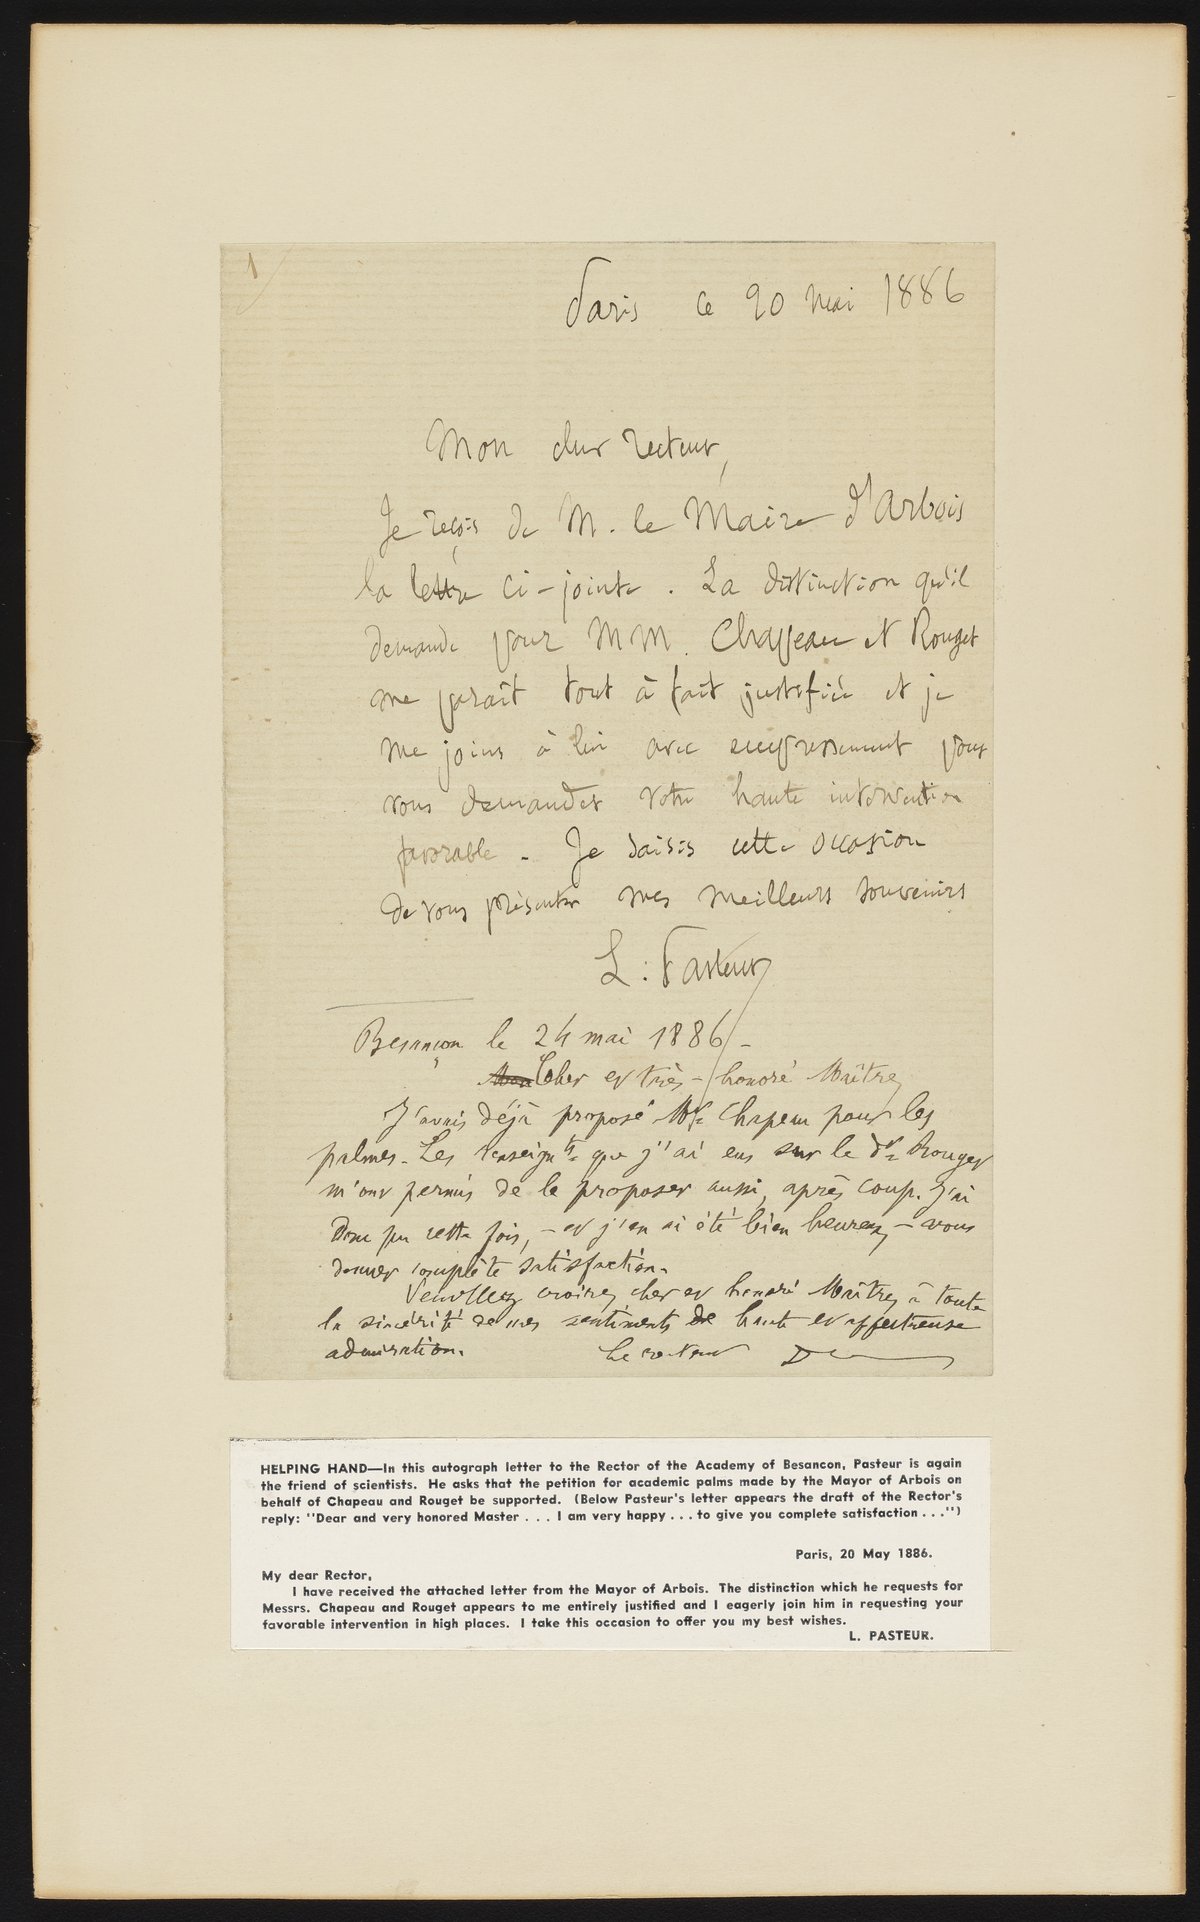 1
Paris ce 20 mai 1886
Mon cher recteur,
Je reçois de M. le Maire d'Arbois
la lettre ci-jointe. La distinction qu'il
demande pour MM. Chappeau et Rouget
me paraît tout à fait justifiée et je
me joins à lui avec empressement pour
vous demander votre haute intervention
favorable. Je saisis cette occasion
de vous présenter mes meilleurs souvenirs
L. Pasteur
Besançon le 24 mai 1886 -
Mon Cher et très-honoré Maître,
J'avais déjà proposé Mr Chapeau pour les
palmes. Les renseignts que j'ai eus sur le Dr Rouget
m'ont permis de le proposer aussi, après coup. J'ai
donc pu cette fois, - et j'en ai été bien heureux, - vous
donner complète satisfaction.
Veuillez croire, cher et honoré Maître, à toute
la sincérité de mes sentiments de haute et affectueuse
admiration. Le recteur
HELPING HAND—In this autograph letter to the Rector of the Academy of Besancon, Pasteur is again
the friend of scientists. He asks that the petition for academic palms made by the Mayor of Arbois on
behalf of Chapeau and Rouget be supported. (Below Pasteur's letter appears the draft of the Rector's
reply: "Dear and very honored Master . . . I am very happy . . . to give you complete satisfaction . . .")
Paris, 20 May 1886.
My dear Rector,
I have received the attached letter from the Mayor of Arbois. The distinction which he requests for
Messrs. Chapeau and Rouget appears to me entirely justified and I eagerly join him in requesting your
favorable intervention in high places. I take this occasion to offer you my best wishes.
L. PASTEUR.